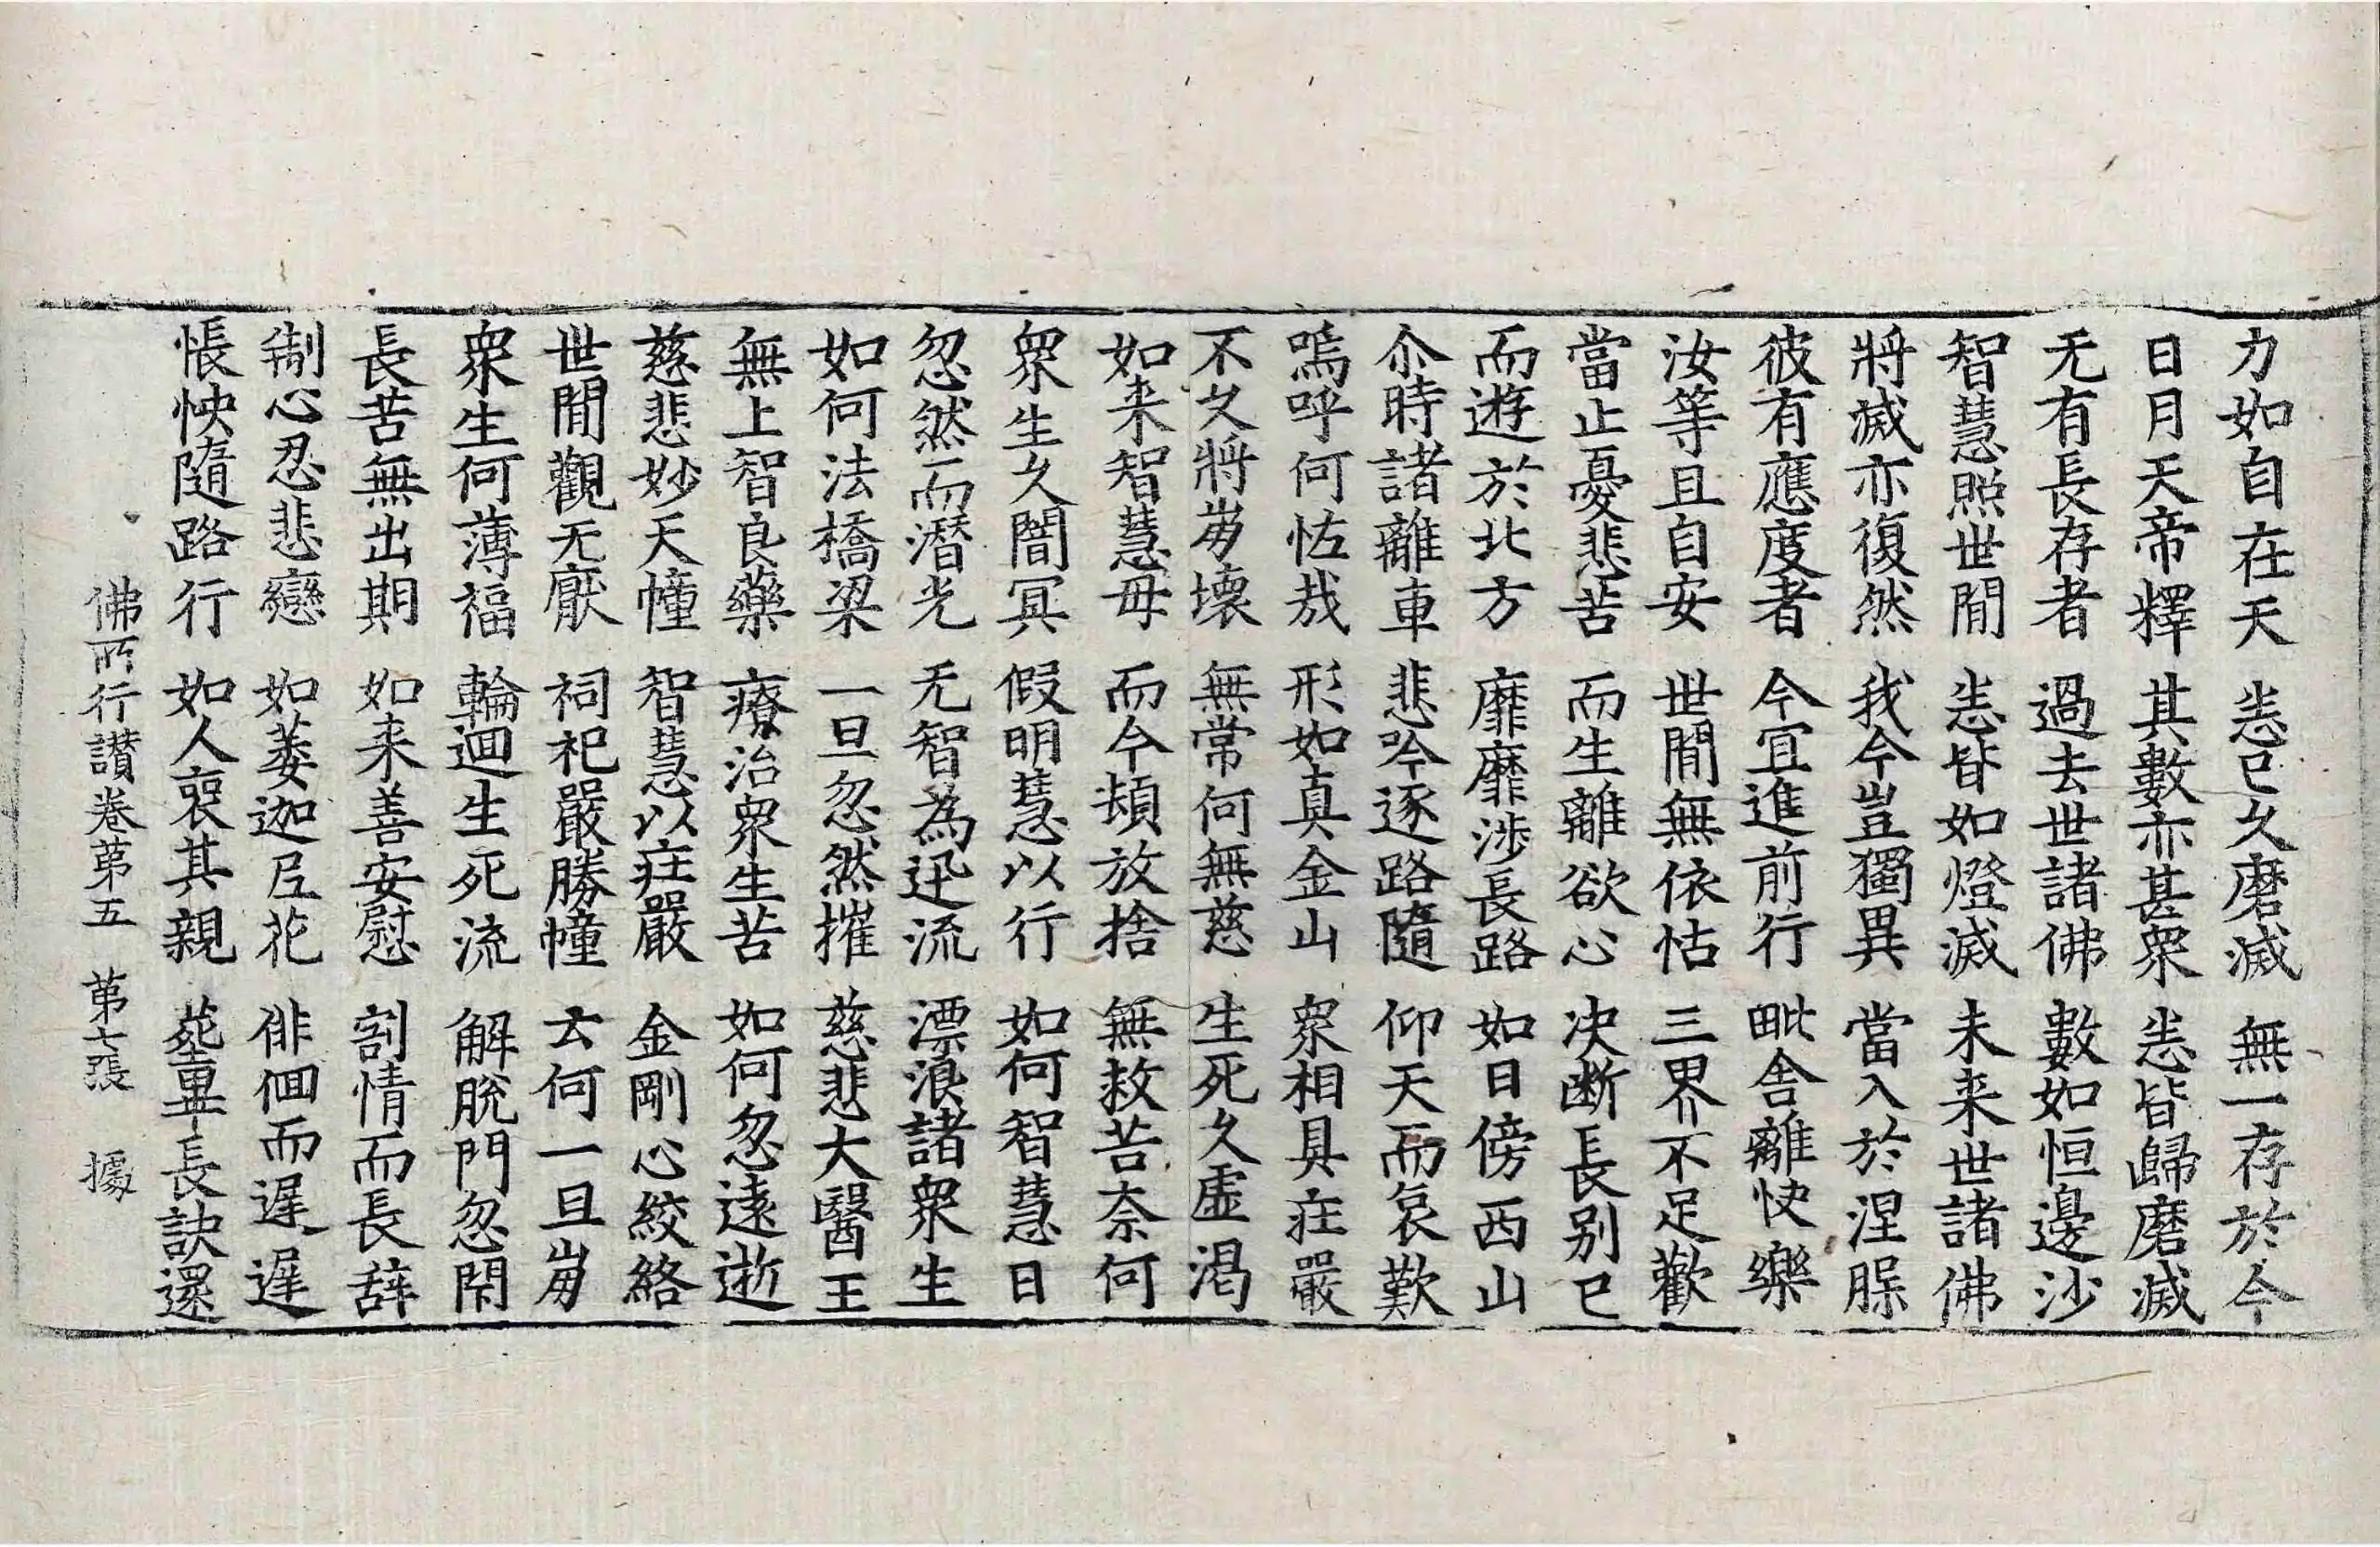 力如自在天 恙已久磨滅 無一存於今
日月天帝釋 其數亦甚衆 恙皆歸磨滅
无有長存者 過去世諸佛 數如恒邊沙
智慧照世閒 恙皆如燈滅 未来世諸佛
將滅亦復然 我今豈獨異 當入於涅槃
彼有應度者 今冝進前行 毗舎離快樂
汝等且自安 世閒無依怙 三界不足歡
當止憂悲苦 而生離欲心 决断長别已
而遊於北方 靡靡涉長路 如日傍西山
尒時諸離車 悲吟逐路隨 仰天而哀歎
嗚呼何怪哉 形如真金山 衆相具莊嚴
不久將崩壞 無常何無慈 生死久虛渴
如来智慧母 而今頓放捨 無救苦奈何
衆生久闇冥 假明慧以行 如何智慧日
忽然而潛光 无智為迅流 漂浪諸衆生
如何法橋梁 一旦忽然摧 慈悲大醫王
無上智良藥 療治衆生苦 如何忽遠逝
慈悲妙天幢 智慧以莊嚴 金剛心絞絡
世閒觀无厭 祠祀嚴勝幢 云何一旦崩
衆生何薄福 輪迴生死流 解脫門忽閇
長苦無出期 如来善安慰 割情而長辞
制心忍悲戀 如萎迦尼花 徘徊而遲遲
悵怏隨路行 如人喪其親 葬畢長訣還
佛所行讃卷第五 第七張 據